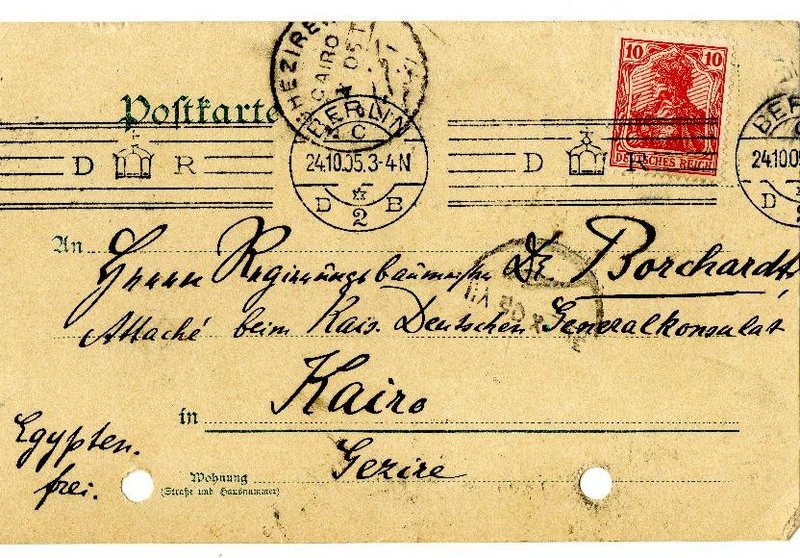 GHEZIREH
CAIRO
OCT
10 10
DEUTSCHES REICH
Postkarte
BERLIN
C
24.10.05.3-4N
2
D B
D R
D R
BERLIN
C
24.10.05
D
An Herrn Regierungsbaumeister Dr. Borchardt,
Attaché beim Kais. Deutschen Generalkonsulat
in Kairo
Gezire
Egypten.
frei.
Wohnung
(Straße und Hausnummer)